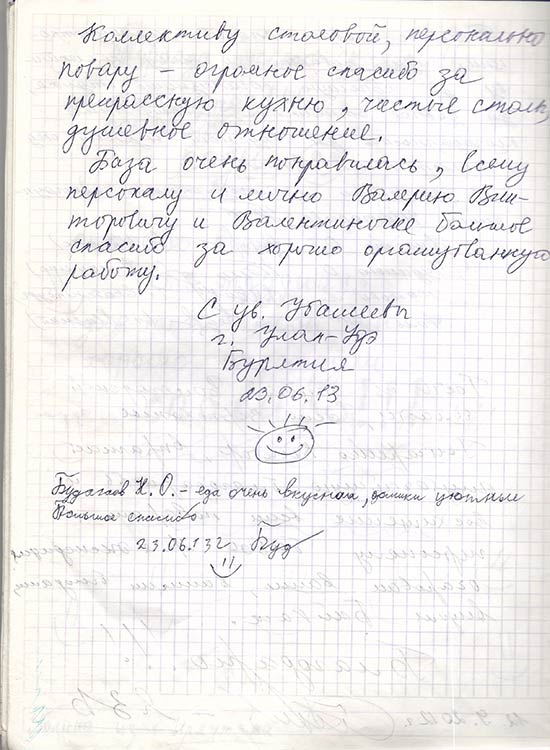 Коллективу столовой, персонально
повару – огромное спасибо за
прекрасную кухню, чистые столы,
душевное отношение.
База очень понравилась, всему
персоналу и лично Валерию Вик-
торовичу и Валентиночке большое
спасибо за хорошо организованную
работу.
С ув. Убашеевы
г. Улан-Удэ
Бурятия
23.06.13
Н. О. – еда очень вкусная, домики уютные
Большое спасибо
23.06.13г Буд